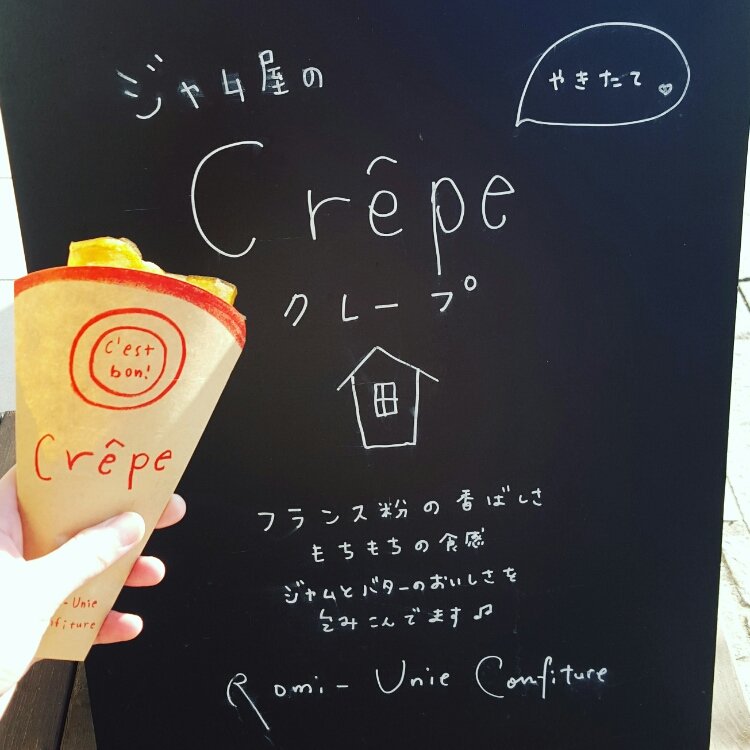 ジャム屋の
やきたて
Crêpe
クレープ
フランス粉の香ばしさ
もちもちの食感
ジャムとバターのおいしさを
包みこんでます♫
Romi-Unie Confiture
C'est
bon!
Crêpe
-Unie
nfiture